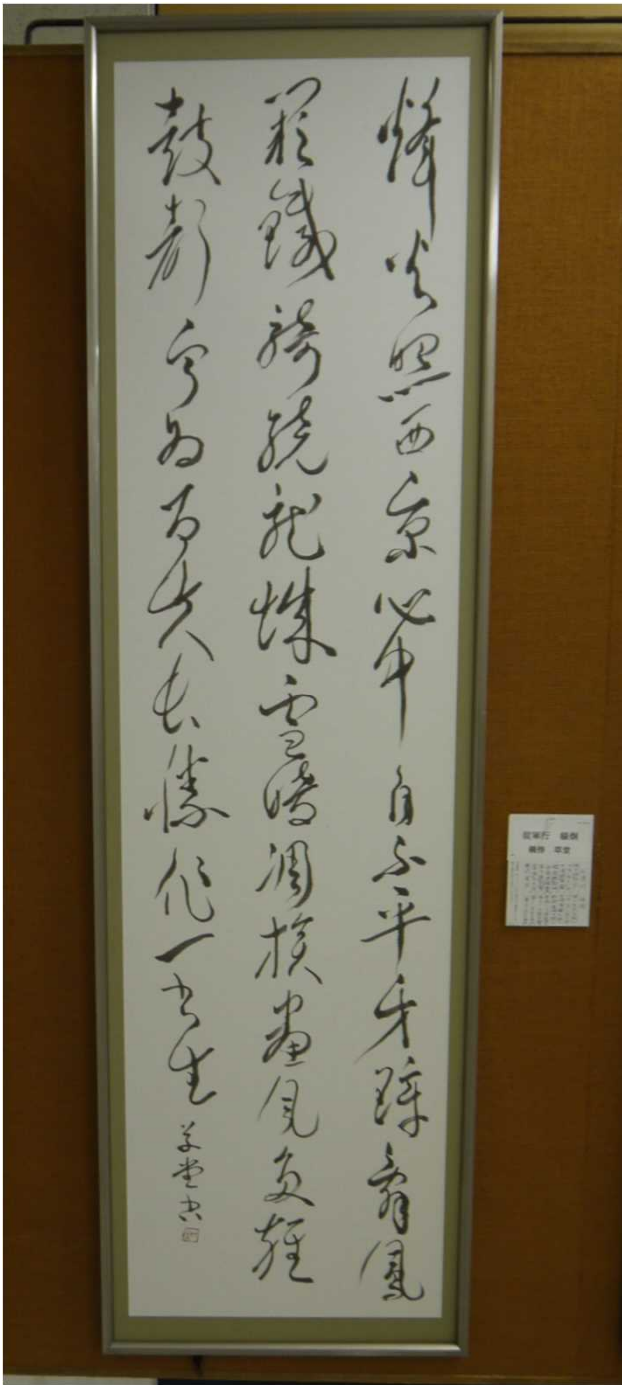 烽火照西京心中自不平牙璋辭鳳
闕鐵騎繞龍城雪暗凋旗畫風多雜
鼓聲寧為百夫長勝作一書生
草堂書
從軍行 楊炯
草堂